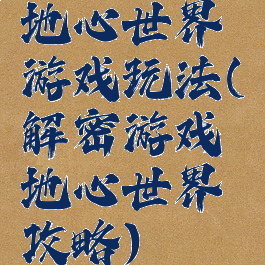 地心世界
游戏玩法(
解密游戏
地心世界
攻略)